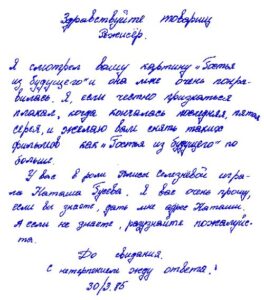 Здравствуйте товарищ
Режисёр.
Я смотрел вашу картину „Гостья
из будущего" и она мне очень понра-
вилась. Я, если честно признаться
плакал, когда кончалась последняя, пятая
серея, и желаю вам снять таких
фильмов как „Гостья из будущего" по
больше.
У вас в роли Алиси Селезнёвой игра-
ла Наташа Гусева. Я вас очень прошу,
если вы знаете, дать мне адрес Наташи.
А если не знаете, разузнайте пожалуйс-
та.
До свидания.
С нетерпением жду ответа.
30/3.85